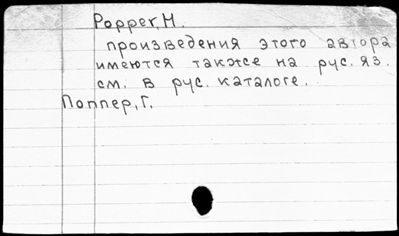 Popper, H.
произведения этого автора
имеются также на рус. яз.
см. в рус. каталоге.
Поппер, Г.